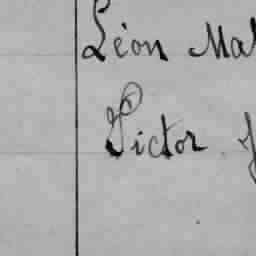 Léon Mal
Victor J